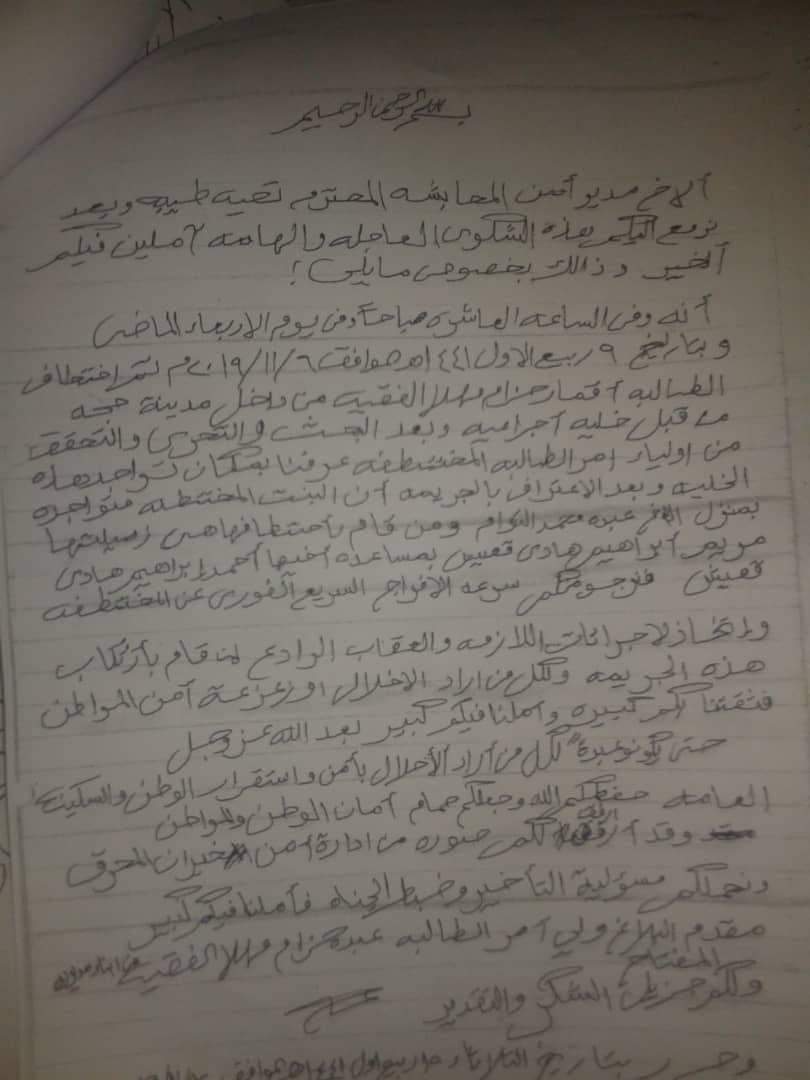 بسم الله الرحمن الرحيم
ألاخ مدير أمن المحابشه المحترم تحيه طيبه وبعد
نرفع اليكم بهذه الشكوى العاجله والهامه آملين فيكم
ألخير وذالك بخصوص مايلي!
أنه وفي الساعه العاشره صباحاً وفي يوم الاربعاء الماضي
وبتاريخ ٩ ربيع الاول ١٤٤١هـ الموافق ٢٠١٩/١١/٦م تم اختطاف
الطالبه أقمار حزام الفقيه من داخل مدينة حجه
من قبل خليه اجراميه وبعد البحث والتحري والتحقق
من اولياء امر الطالبه المختطفه عرفنا بمكان تواجد هذه
الخليه وبعد الاعتراف بالجريمه أن البنت المختطفه متواجده
بمنزل الاخ عبده محمد ومن قام بأختطافها هي زميلتها
مريم أبراهيم هادي قعيش بمساعده أخيها أحمد إبراهيم هادي
قعيش فنرجو منكم سرعه الافراج السريع ألفوري عن المختطفه
وإتخاذ لاجرائات اللازمه والعقاب الرادع لمن قام بأرتكاب
هذه الجريمه ولكل من اراد الاخلال او زعزعة أمن المواطن
فثقتنا بكم كبيره وأملنا فيكم كبير بعد الله عز وجل
حتى يكونو عبرة لكل من أراد ألأخلال بأمن واستقرار الوطن والسكينه
العامه حفظكم الله وجعلكم صمام أمان الوطن والمواطن
وقد أرفقنا لكم صوره من ادارة أمن خيران المحرق
ونحملكم مسؤلية التأخير وضبط الجناه فأملنا فيكم كبير
مقدم البلاغ ولي أمر الطالبه عبده حزام الفقيه من ابناء مديرية
المفتاح
ولكم جزيل الشكر والتقدير
وحرر بتاريخ الثلاثاء ربيع اول ١٤٤١هـ الموافق